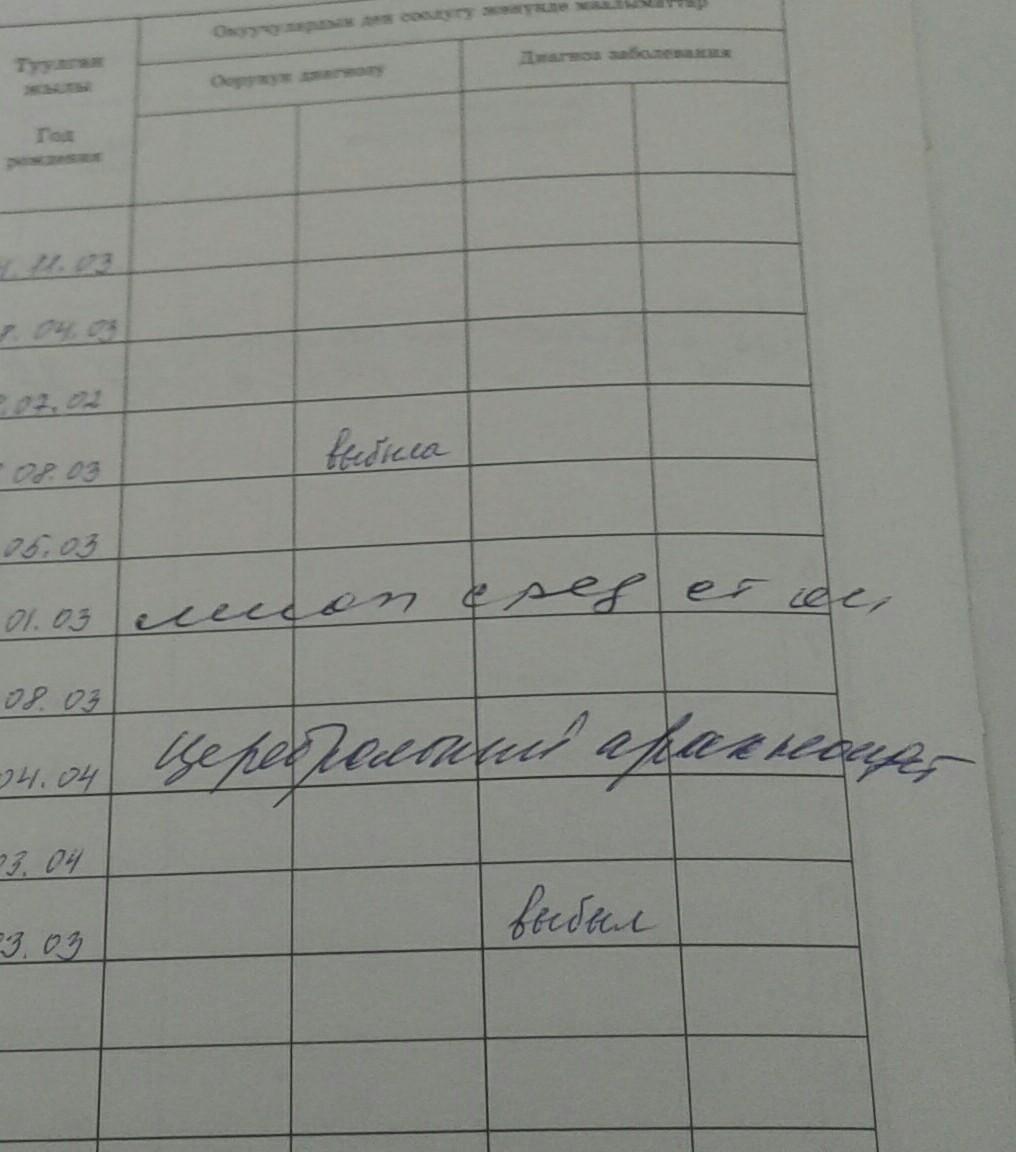 Окуучулардын ден соолугу жөнүндө маалыматтар
Туулган жылы
Оорунун диагнозу
Диагноз заболевания
Год рождения
11.03
8.04.03
.07.02
08.03 выбыла
05.03
01.03 миоп сред ст
08.03
04.04 Церебральный арахноидит
03.04
03.03 выбыл